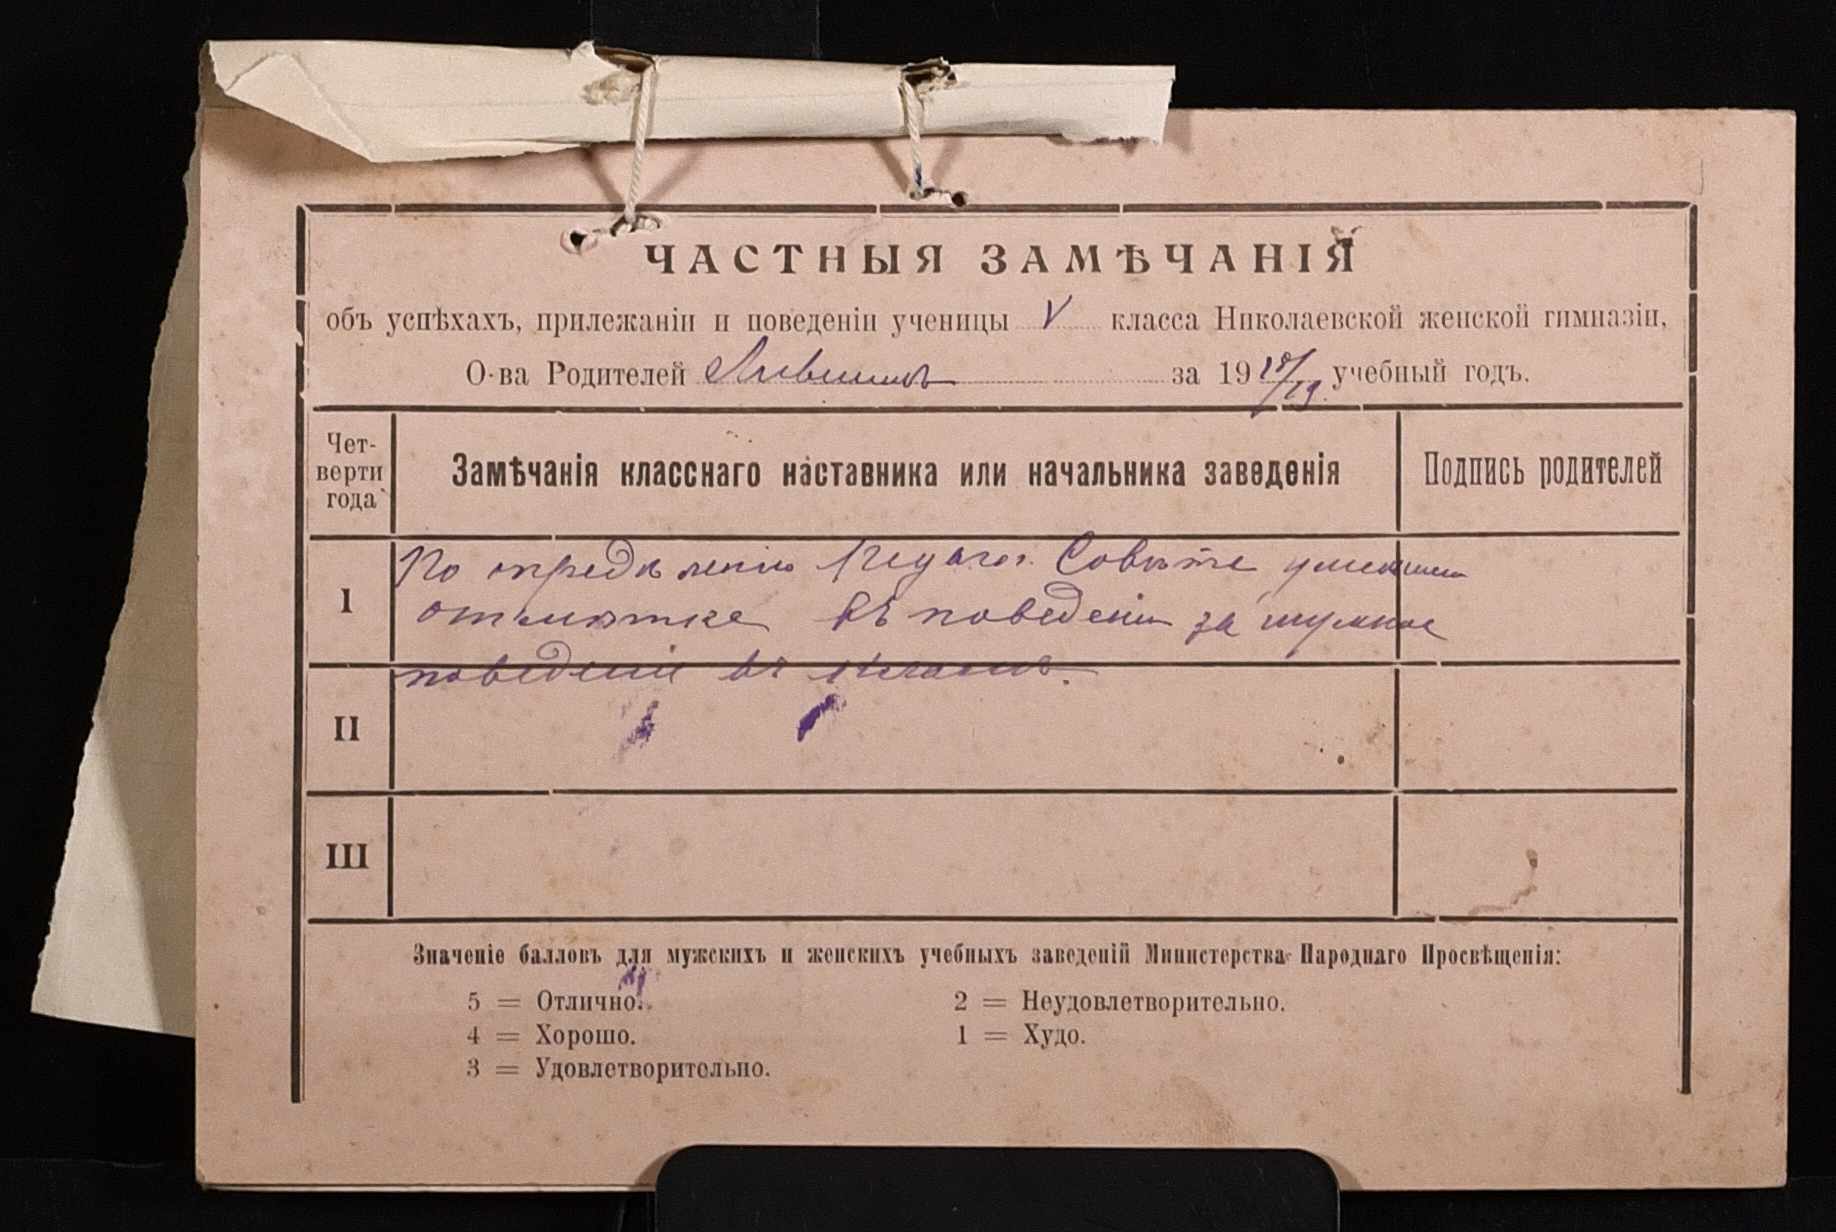 ЧАСТНЫЯ ЗАМѢЧАНІЯ
объ успѣхахъ, прилежаніи и поведеніи ученицы V класса Николаевской женской гимназіи,
О-ва Родителей за 1918/19 учебный годъ.
Чет-
верти
года
Замѣчанія класснаго наставника или начальника заведенія
Подпись родителей
I
По опредѣленію Педагог. Совѣта
отмѣтка въ поведеніи за шумное
поведеніе въ классѣ.
II
III
Значеніе балловъ для мужскихъ и женскихъ учебныхъ заведеній Министерства Народнаго Просвѣщенія:
5 = Отлично. 2 = Неудовлетворительно.
4 = Хорошо. 1 = Худо.
3 = Удовлетворительно.